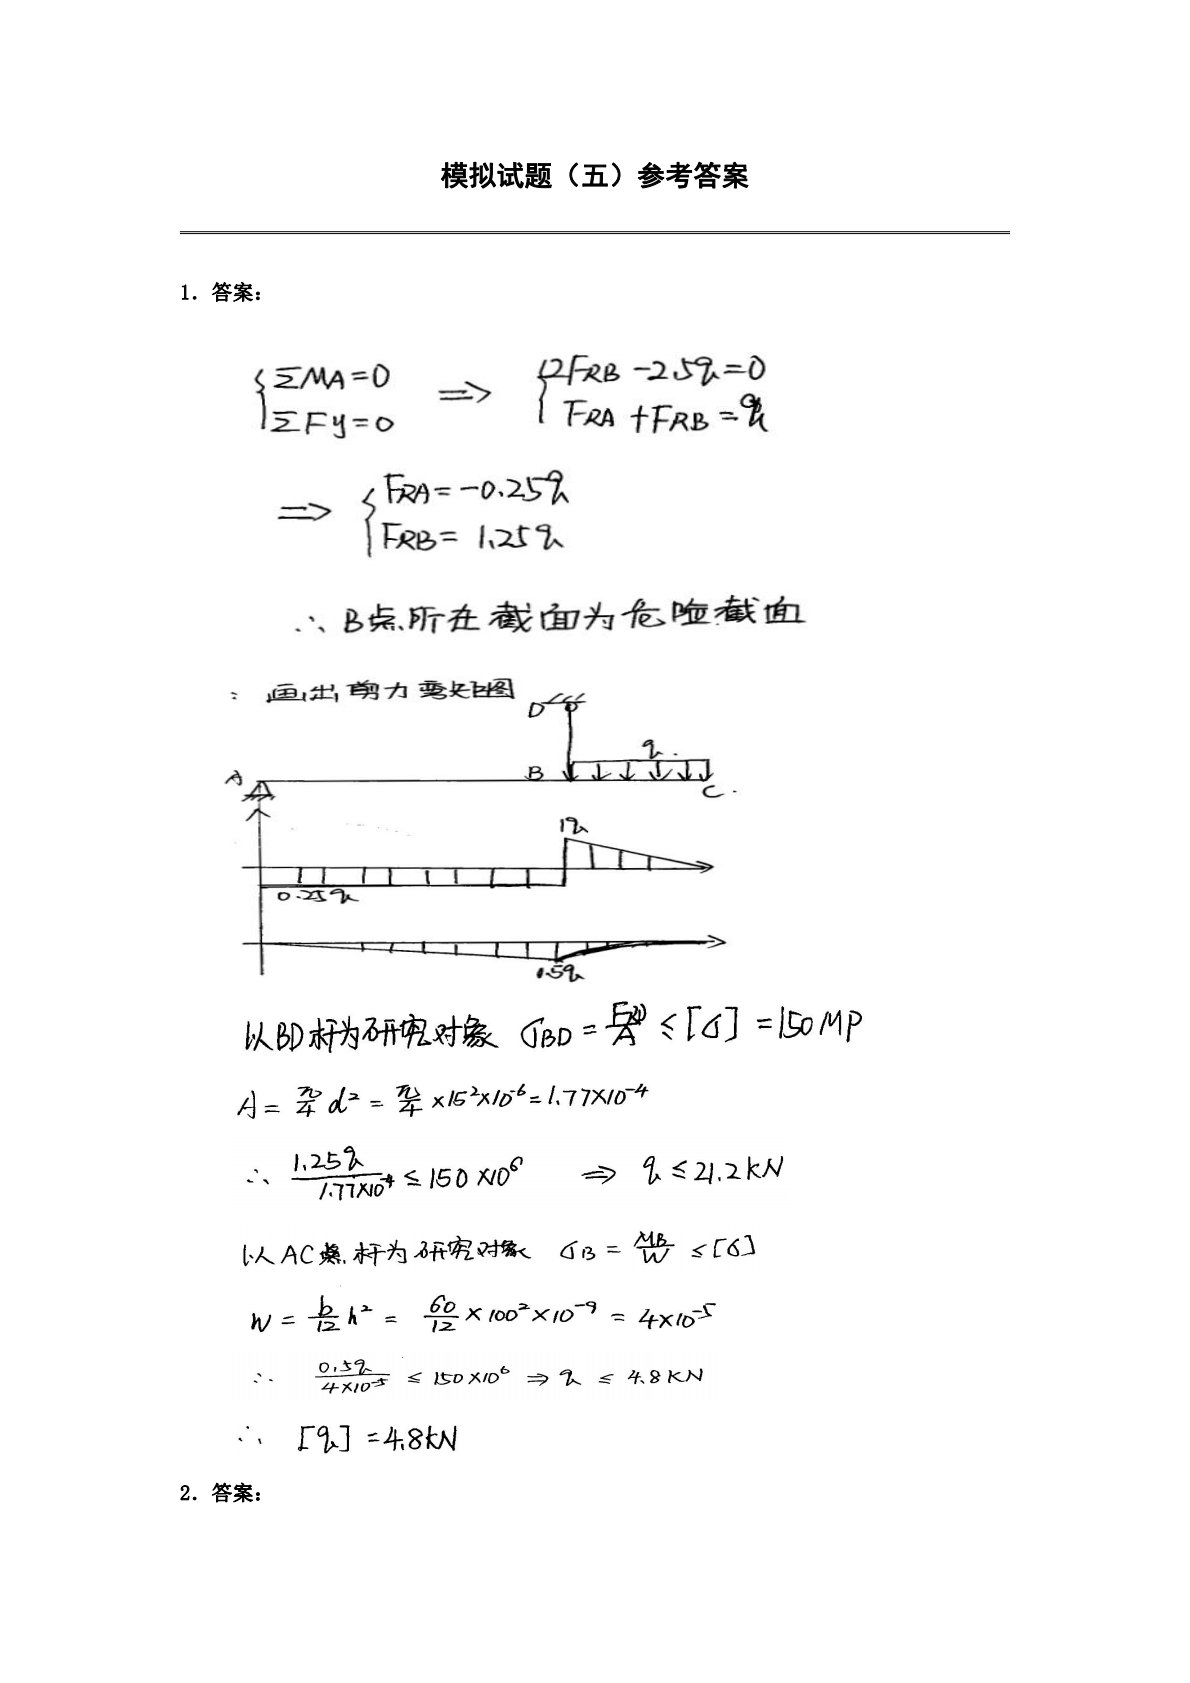 模拟试题（五）参考答案
1. 答案：
{ΣMA=0 ⇒ {2FRB -2.5q=0
ΣFy=0 FRA +FRB =q
⇒ {FRA= -0.25q
FRB= 1.25q
∴ B点所在截面为危险截面
: 画出剪力弯矩图
D
q
A
B
C
1q
0.25q
0.5q
以BD杆为研究对象 σBD = ≤ [σ] =150MP
A = π/4 d² = π/4 ×15²×10⁻⁶=1.77×10⁻⁴
∴ 1.25q/1.77×10⁻⁴ ≤ 150×10⁶ ⇒ q ≤21.2kN
以AC 杆为研究对象 σB = MB/W ≤[σ]
W = b/12 h² = 60/12 × 100²×10⁻⁹ = 4×10⁻⁵
∴ 0.5q/4×10⁻⁵ ≤ 150×10⁶ ⇒ q ≤ 4.8KN
∴ [q] =4.8kN
2. 答案：